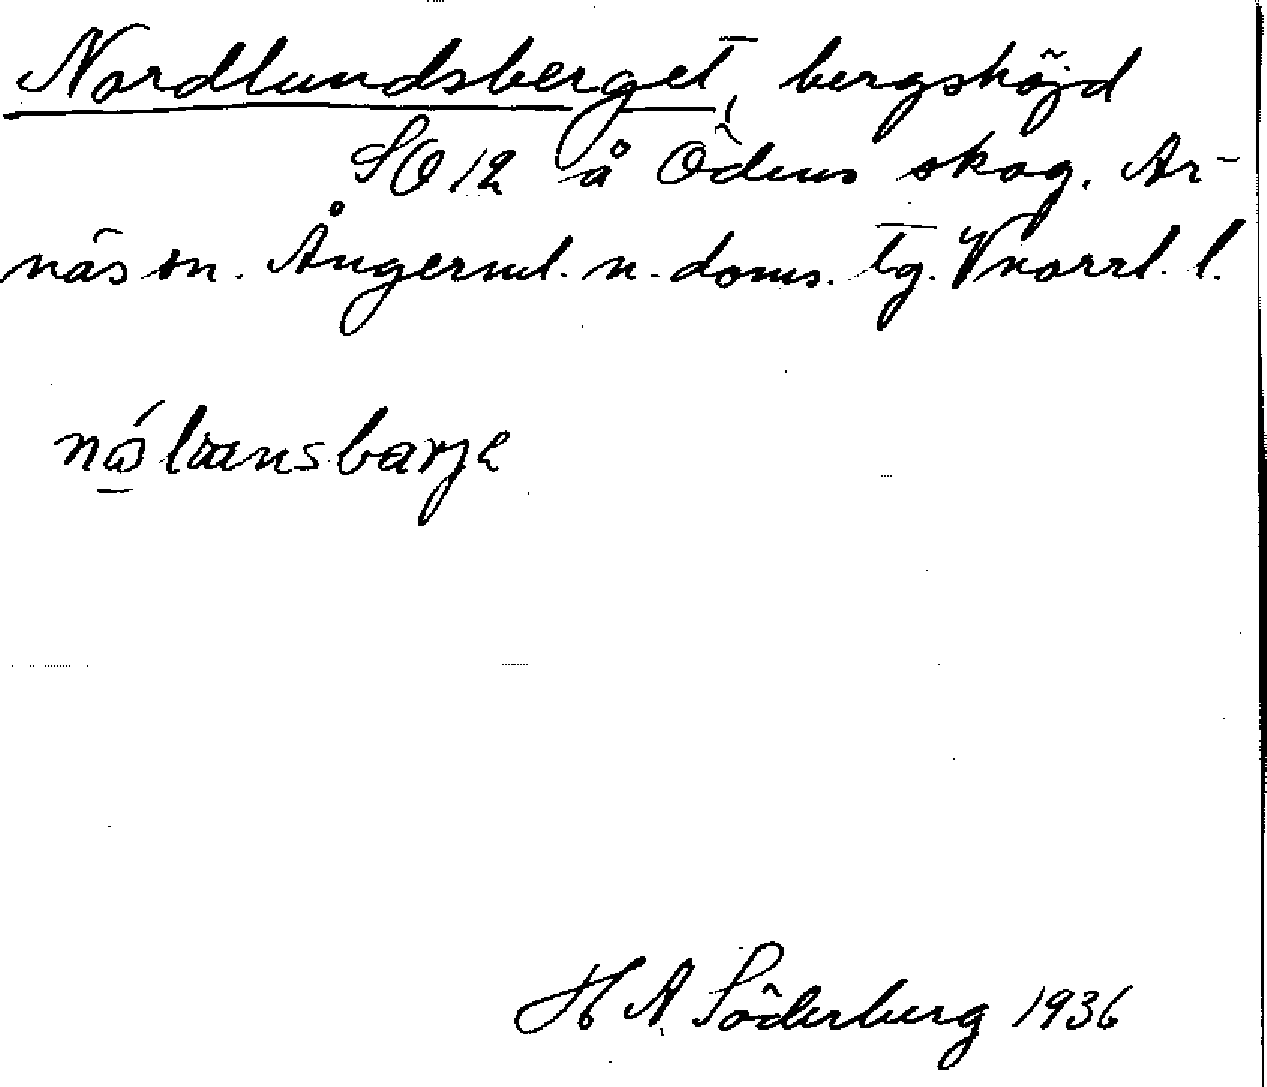 Nordlundsberget, bergshöjd
SO 12 å Ödens skog. Ar-
näs sn. Ångerml. n. doms. tg. Vnorrl. l.
H A Söderberg 1936